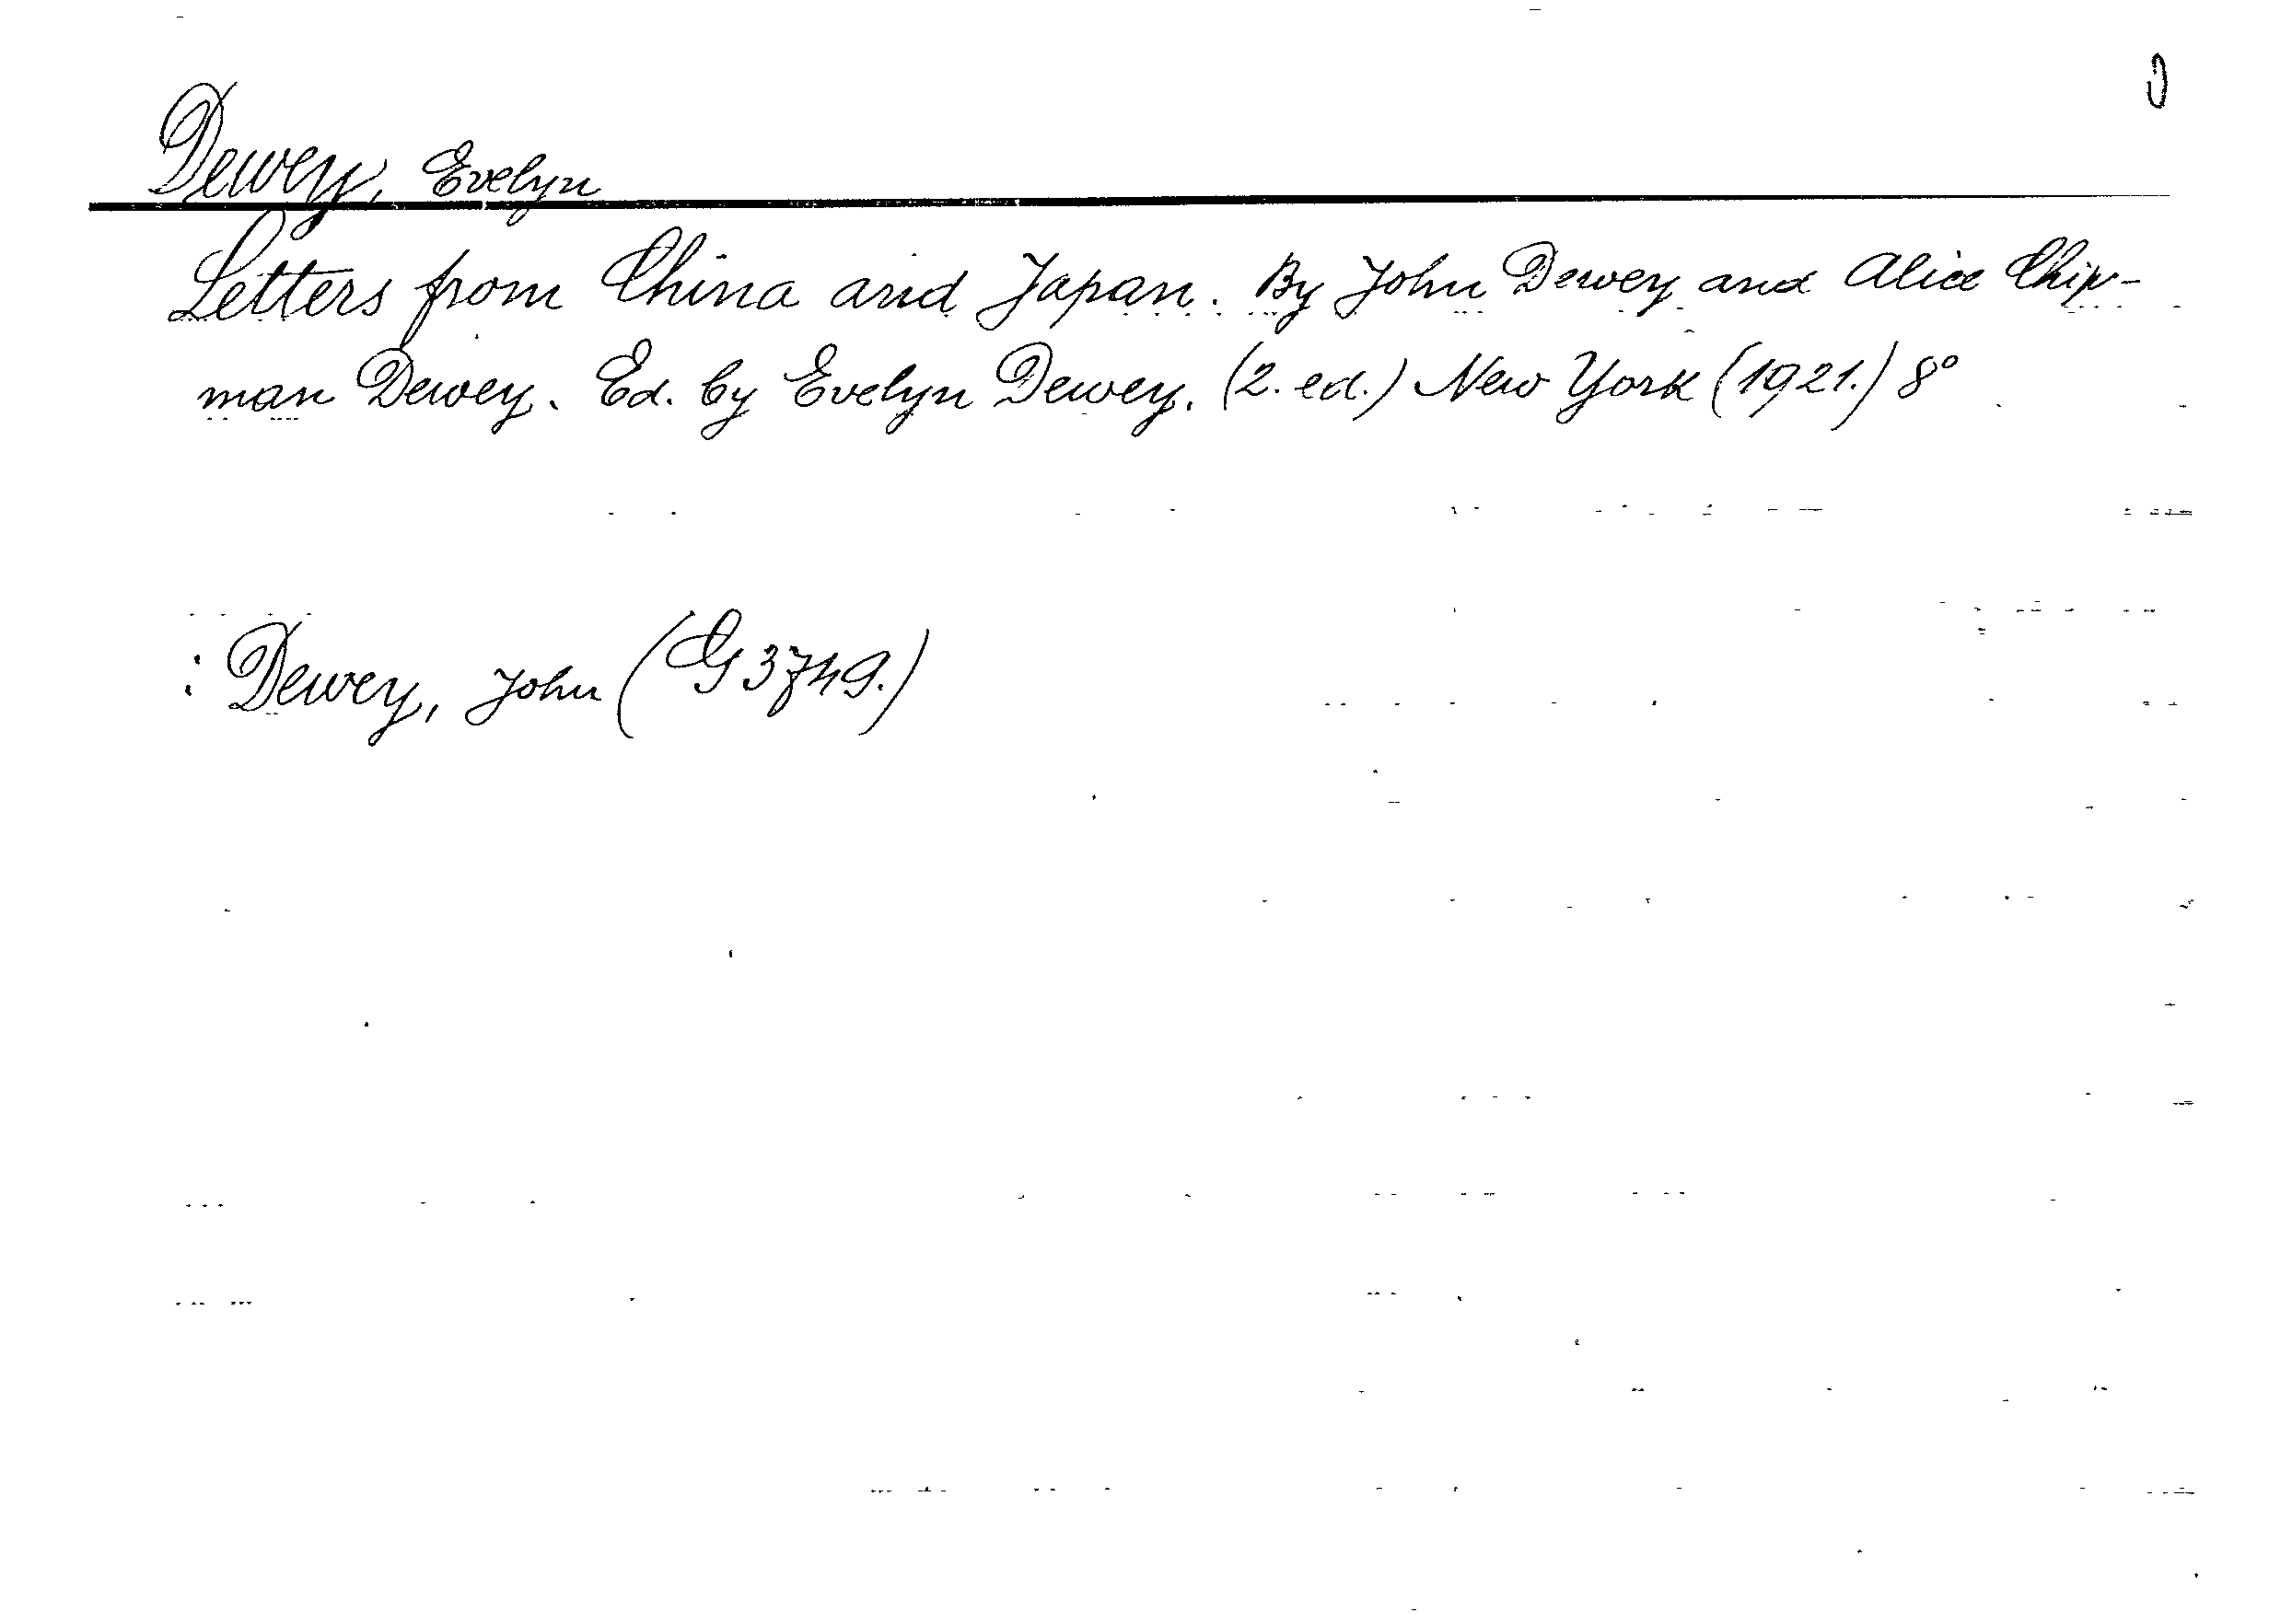 Dewey, Evelyn
Letters from China and Japan. By John Dewey and Alice Chip-
man Dewey. Ed. by Evelyn Dewey. (2. ed.) New York (1921.) 8°
: Dewey, John (G 3749.)